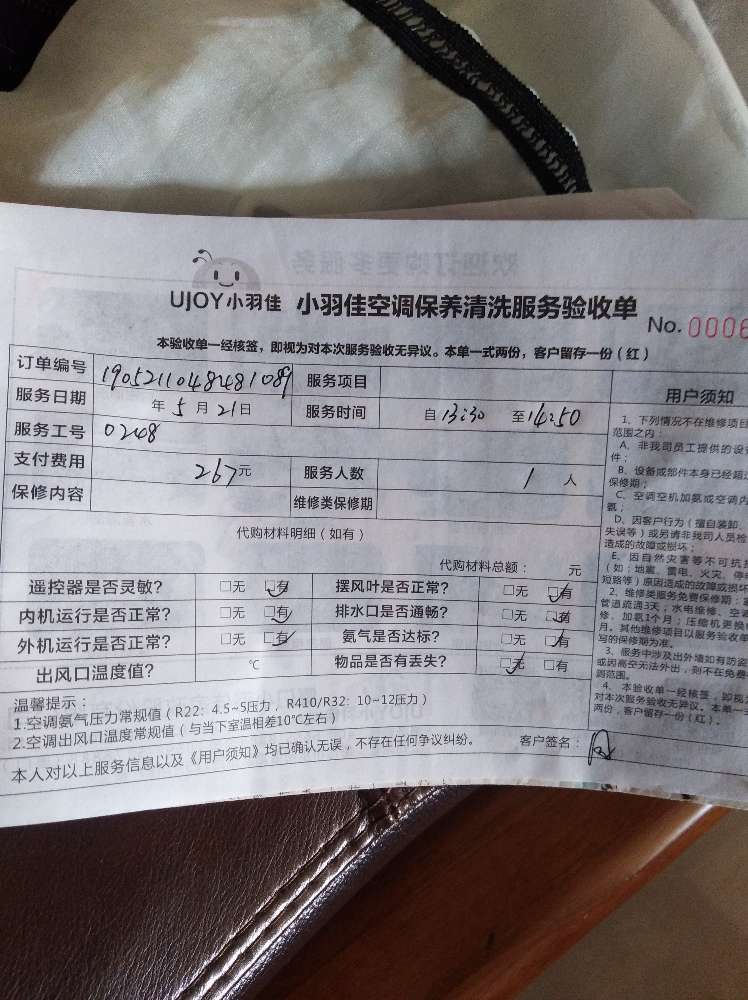 UJOY小羽佳 小羽佳空调保养清洗服务验收单
No. 0006
本验收单一经核签，即视为对本次服务验收无异议。本单一式两份，客户留存一份（红）
订单编号 1905211048481089 服务项目
服务日期 年 5 月 21 日 服务时间 自 13:30 至 14:50
服务工号 0248
支付费用 267 元 服务人数 1 人
保修内容 维修类保修期
代购材料明细（如有）
代购材料总额： 元
遥控器是否灵敏？ □无 □有 摆风叶是否正常？ □无 □有
内机运行是否正常？ □无 □有 排水口是否通畅？ □无 □有
外机运行是否正常？ □无 □有 氨气是否达标？ □无 □有
出风口温度值？ ℃ 物品是否有丢失？ □无 □有
温馨提示：
1.空调氨气压力常规值（R22：4.5~5压力，R410/R32：10~12压力）
2.空调出风口温度常规值（与当下室温相差10℃左右）
本人对以上服务信息以及《用户须知》均已确认无误，不存在任何争议纠纷。 客户签名：
用户须知
1、下列情况不在维修项目
范围之内：
A、非我司员工提供的设
件；
B、设备或部件本身已经超过
保修期；
C、空调空机加氨或空调内
氨；
D、因客户行为（擅自装卸、
失误等）或另请非我司人员检
造成的故障或损坏；
E、因自然灾害等不可抗拒
（如：地震、雷电、火灾、停
短路等）原因造成的故障或损坏
2、维修类服务免费保修期：
管道疏通3天；水电维修、空
修、加氨1个月；压缩机更换
月。其他维修项目以服务验收单
写的保修期为准。
3、服务中涉及出外墙如有防盗
或因高空无法外出，则不在免费
调范围。
4、本验收单一经核签，即视为
对本次服务验收无异议。本单一式
两份，客户留存一份（红）。